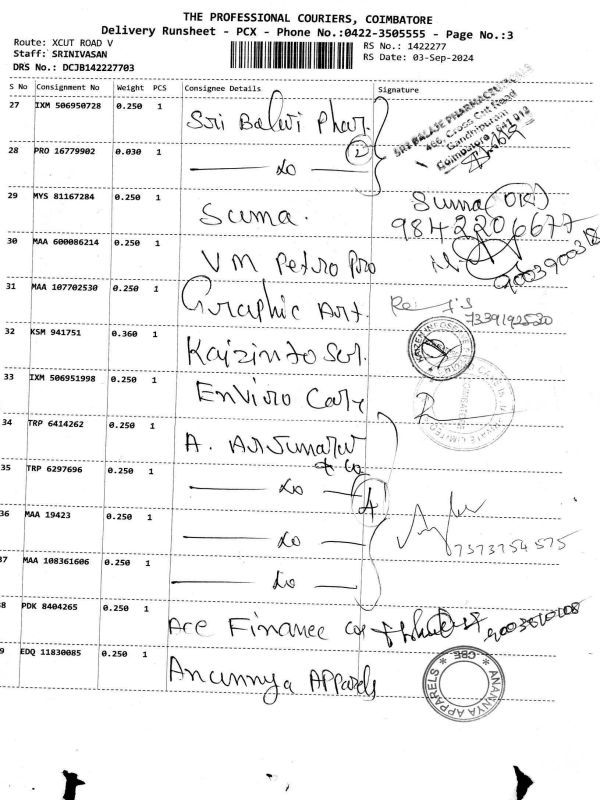 THE PROFESSIONAL COURIERS, COIMBATORE
Delivery Runsheet - PCX - Phone No.:0422-3505555 - Page No.:3
Route: XCUT ROAD V RS No.: 1422277
Staff: SRINIVASAN RS Date: 03-Sep-2024
DRS No.: DCJB142227703
S No Consignment No Weight PCS Consignee Details Signature
27 IXM 506950728 0.250 1 Sri Balaji Phar. SRI BALAJI PHARMACEUTICALS
466, Cross Cut Road
Gandhipuram
Coimbatore-641 012
28 PRO 16779902 0.030 1 — do — 2
29 MYS 81167284 0.250 1 Suma. Suma (OR)
9842206677
30 MAA 600086214 0.250 1 VM Petro Pro 9003900318
31 MAA 107702530 0.250 1 Graphic Art. 7339192520
32 KSM 941751 0.360 1 Kaizinfo Ser.
33 IXM 506951998 0.250 1 Enviro Care
34 TRP 6414262 0.250 1 A. Arjunaraj
& Co
35 TRP 6297696 0.250 1 — do — 4
36 MAA 19423 0.250 1 — do — 7373754575
37 MAA 108361606 0.250 1 — do —
8 PDK 8404265 0.250 1 Ace Finance Co
9 EDQ 11830085 0.250 1 Anannya Apparels ANANNYA APPARELS * CBE *